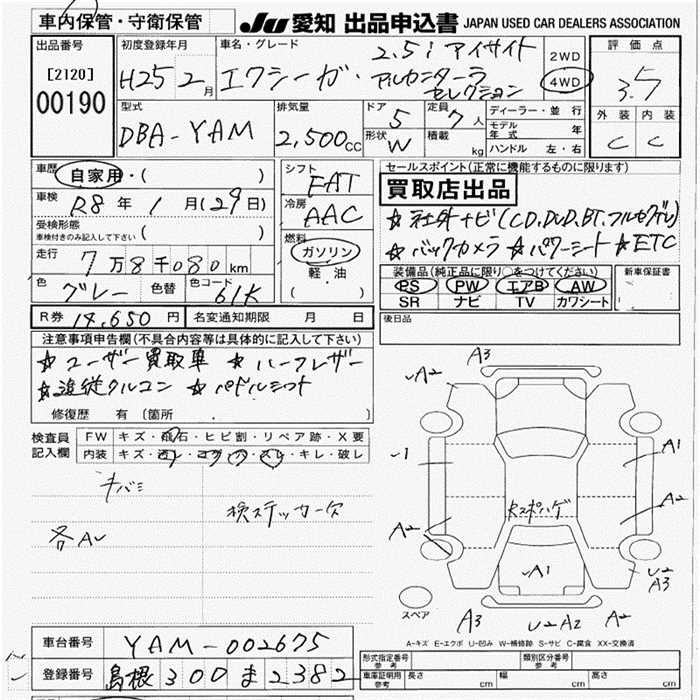 車内保管・守衛保管
JU 愛知 出品申込書 JAPAN USED CAR DEALERS ASSOCIATION
出品番号
[2120]
00190
初度登録年月
H25 2月
車名・グレード
2.5i アイサイト
エクシーガ・アルカンターラ
セレクション
2WD
4WD
評価点
3.5
外装 内装
C C
型式
DBA-YAM
排気量
2,500cc
ドア 5
形状 W
定員 7人
積載 kg
ディーラー・並行
モデル年式 年
ハンドル 左・右
車歴
自家用・( )
車検
R8年 1月(29日)
受検形態
車検付きのみ記入して下さい ( )
走行
7万8千080km
色
グレー
色替
色コード
61K
シフト
FAT
冷房
AAC
燃料
ガソリン
軽油
( )
セールスポイント(正常に機能するものに限ります)
買取店出品
☆社外ナビ(CD,DVD,BT,フルセグTV)
☆バックカメラ ☆パワーシート ☆ETC
装備品(純正品に限り○をつけてください)
PS PW エアB AW
SR ナビ TV カワシート
新車保証書
R券 14,650円
名変通知期限 月 日
後日品
注意事項申告欄(不具合内容等は具体的に記入して下さい)
☆ユーザー買取車 ☆ハーフレザー
☆追従クルコン ☆パドルシフト
修復歴 有 〔箇所 〕
検査員
記入欄
FW キズ・飛石・ヒビ割・リペア跡・X要
内装 キズ・汚レ・コゲ・穴・スレ・キレ・破レ
キバミ
検ステッカー欠
各AU
A3
A2
1
A1
A2
A2
大スポハゲ
A1
U2
A3
スペア
A3
U2 A2
A2
A-キズ E-エクボ U-凹み W-補修跡 S-サビ C-腐食 XX-交換済
車台番号
YAM-002675
登録番号
島根300ま2382
型式指定番号
参考
類別区分番号
参考
車庫証明用
参考
長さ
幅
高さ
cm cm cm